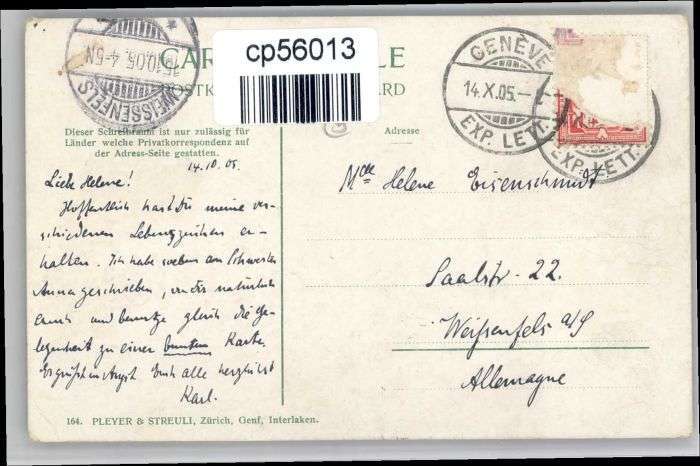 CAR
LE
POSTK
ARD
cp56013
WEISSENFELS
.05. 4-5N
GENÈVE
14.X.05.
EXP. LETT.
EXP. LETT.
Dieser Schreibraum ist nur zulässig für
Länder welche Privatkorrespondenz auf
der Adress-Seite gestatten.
Adresse
14.10.05.
Liebe Helene!
Hoffentlich hast Du meine ver-
schiedenen Lebenszeichen er-
halten. Ich habe soeben an Schwester
Anna geschrieben, natürlich
und benutze gleich die Ge-
legenheit zu einer bunten Karte.
Es grüßt Euch alle herzlichst
Karl.
Mlle Helene Eisenschmidt
Saalstr. 22.
Weißenfels a/S
Allemagne
164. PLEYER & STREULI, Zürich, Genf, Interlaken.